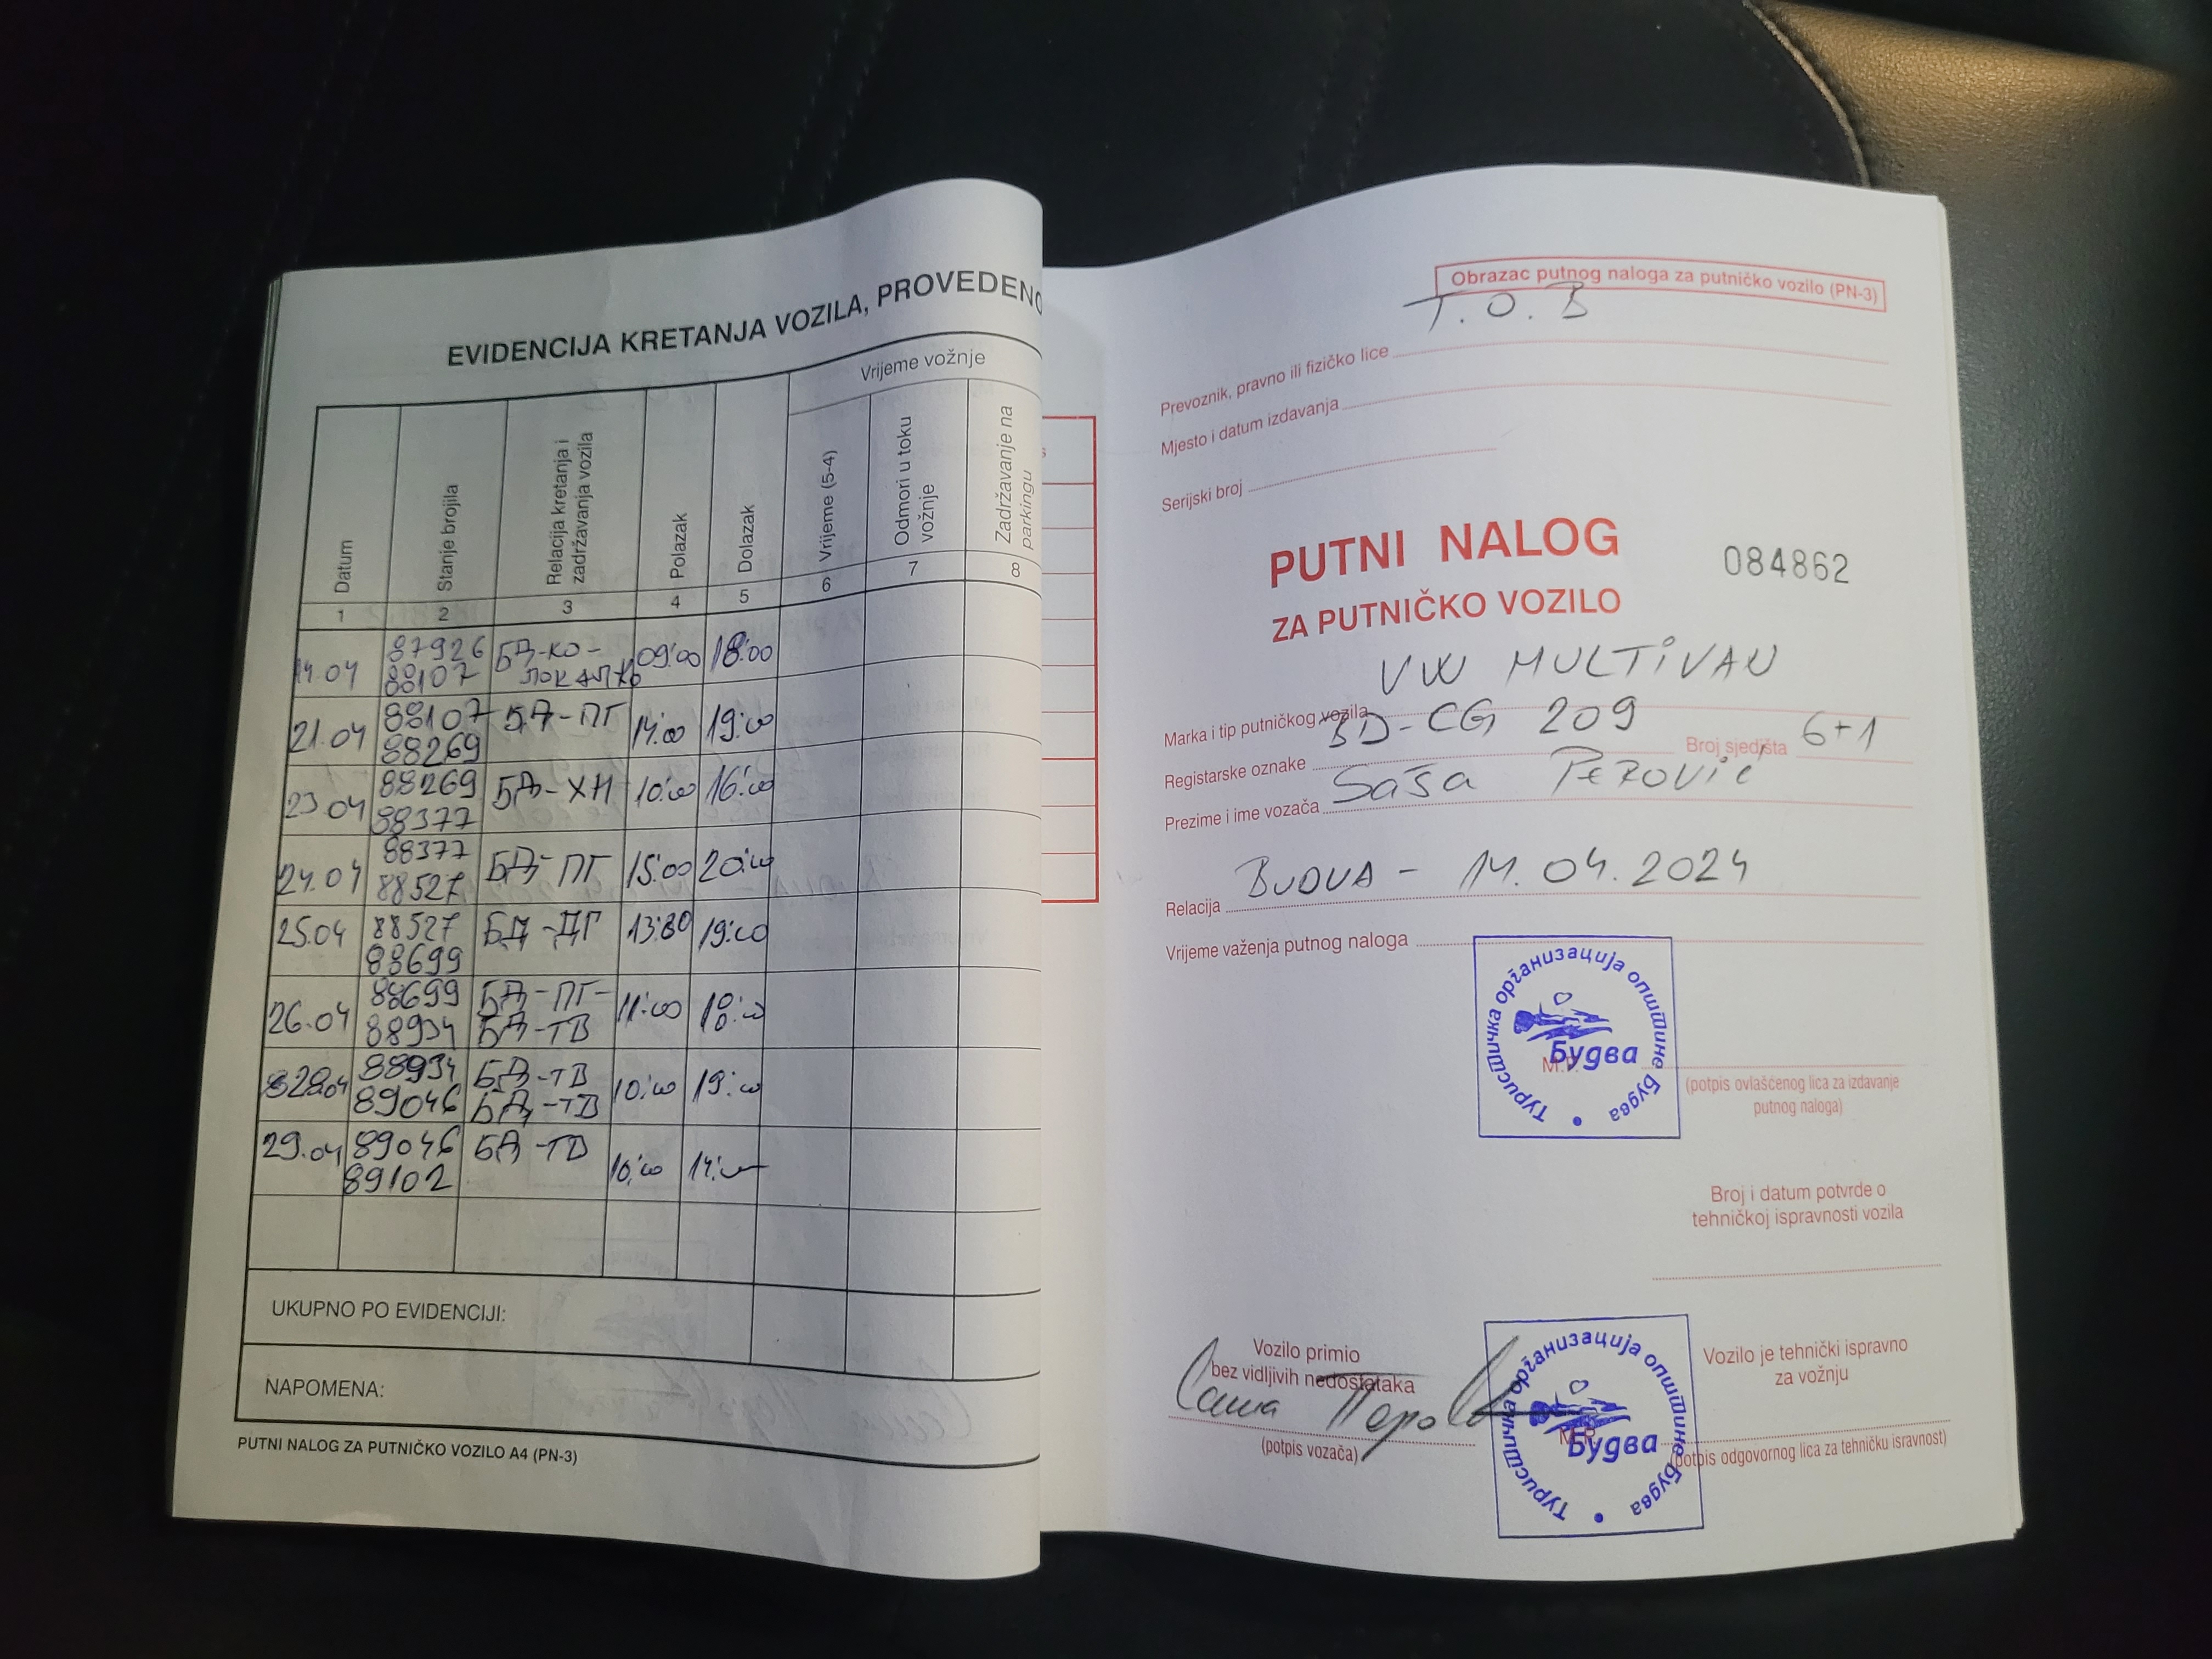 EVIDENCIJA KRETANJA VOZILA, PROVEDENO
Datum
Stanje brojila
Relacija kretanja i
zadržavanja vozila
Polazak
Dolazak
Vrijeme vožnje
Vrijeme (5-4)
Odmori u toku
vožnje
Zadržavanje na
parkingu
1 2 3 4 5 6 7 8
14.04 87926 88107 БД-КО-ЛОКАЛНО 09:00 18:00
21.04 88107 88269 БД-ПГ 14:00 19:00
23.04 88269 88377 БД-ХН 10:00 16:00
24.04 88377 88527 БД-ПГ 15:00 20:00
25.04 88527 88699 БД-ДГ 13:30 19:00
26.04 88699 88934 БД-ПГ- БД-ТВ 11:00 18:00
28.04 88934 89046 БД-ТВ БД-ТВ 10:00 19:00
29.04 89046 89102 БД-ТВ 10:00 14:00
UKUPNO PO EVIDENCIJI:
NAPOMENA:
PUTNI NALOG ZA PUTNIČKO VOZILO A4 (PN-3)
Obrazac putnog naloga za putničko vozilo (PN-3)
T.O.B
Prevoznik, pravno ili fizičko lice
Mjesto i datum izdavanja
Serijski broj
PUTNI NALOG
084862
ZA PUTNIČKO VOZILO
VW MULTIVAN
Marka i tip putničkog vozila
BD-CG 209
Registarske oznake
Broj sjedišta 6+1
Prezime i ime vozača Saša Perović
Relacija BUDVA - 14.04.2024
Vrijeme važenja putnog naloga
Туристичка организација општине Будва
Будва
M.P.
(potpis ovlašćenog lica za izdavanje
putnog naloga)
Broj i datum potvrde o
tehničkoj ispravnosti vozila
Vozilo primio
bez vidljivih nedostataka
Саша Перо
(potpis vozača)
Туристичка организација општине Будва
Будва
M.P.
Vozilo je tehnički ispravno
za vožnju
(potpis odgovornog lica za tehničku isravnost)